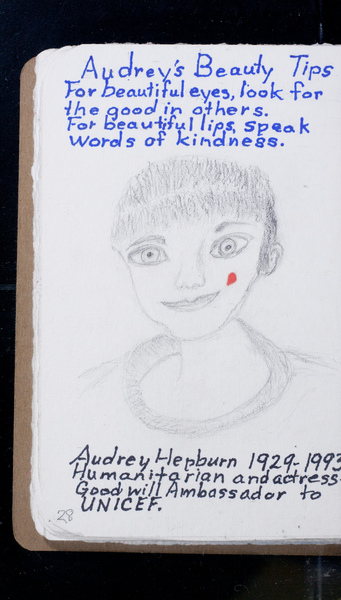 Audrey's Beauty Tips
For beautiful eyes, look for
the good in others.
For beautiful lips, speak
words of kindness.
Audrey Hepburn 1929-1993
Humanitarian and actress
Good will Ambassador to
UNICEF.
28